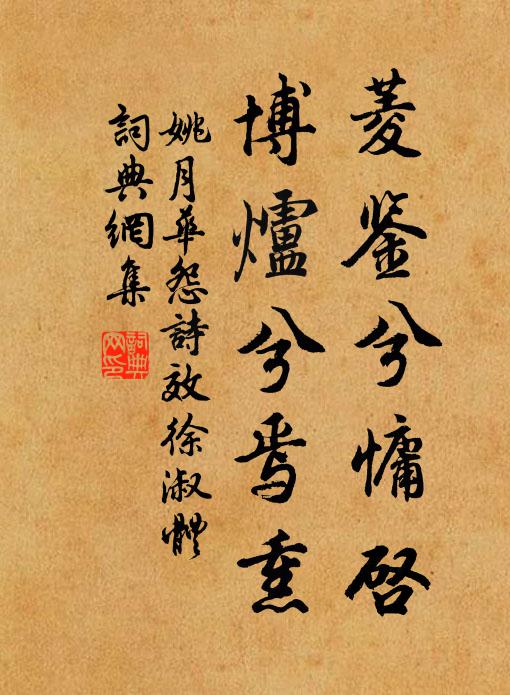 菱鉴兮慵启
博爐兮焉熏
姚月華怨詩效徐淑體
詞典網集